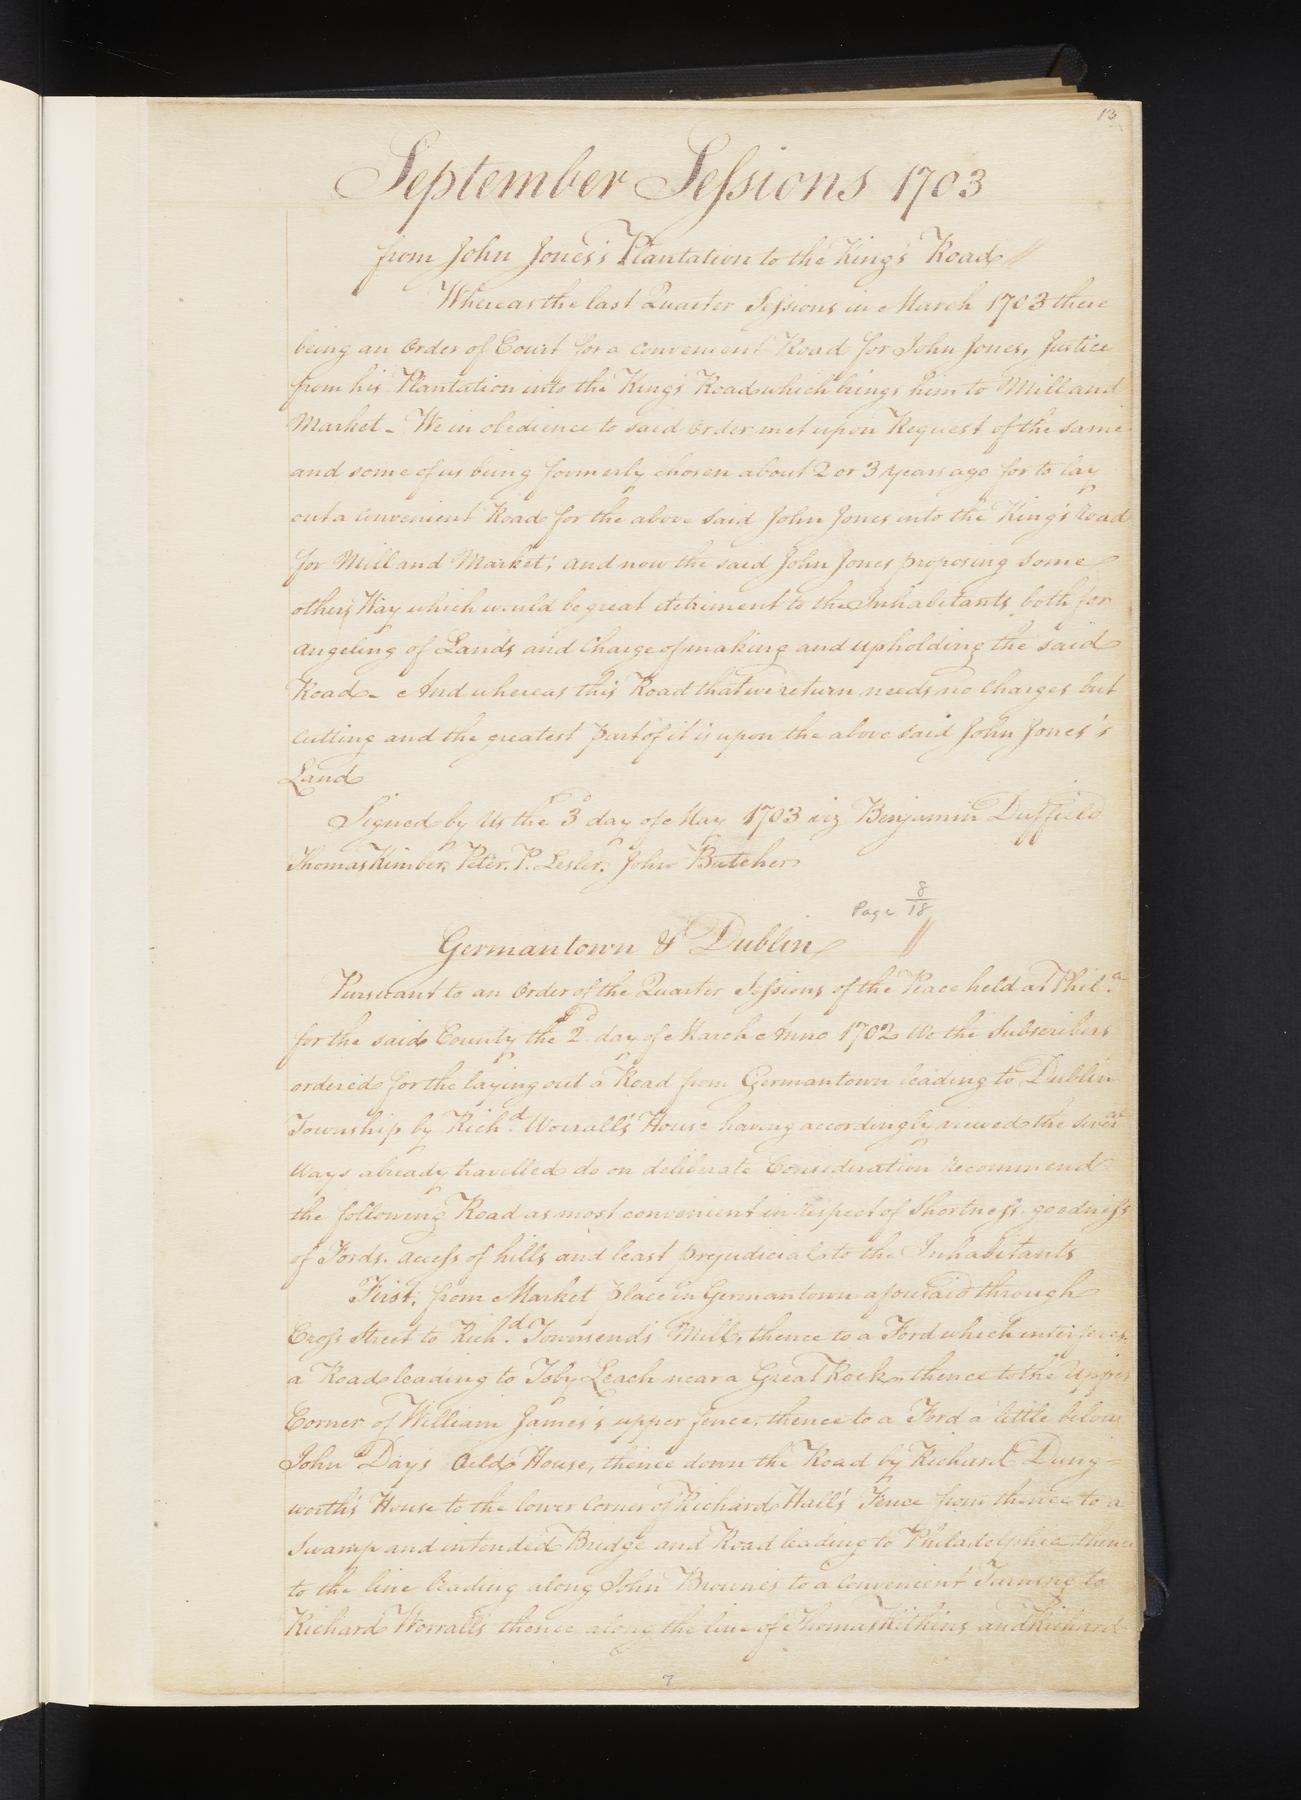 13
September Sessions 1703
from John Jones's Plantation to the King's Road //
Whereas the last Quarter Sessions in March 1703 there
being an Order of Court for a convenient Road for John Jones, Justice
from his Plantation into the King's Road which brings him to Mill and
Market - We in obedience to said Order met upon Request of the same
and some of us being formerly chosen about 2 or 3 years ago for to lay
out a convenient Road for the above said John Jones into the King's Road
for Mill and Market; and now the said John Jones proposing some
other Way which would be great detriment to the Inhabitants both for
angeling of Lands and Charge of making and upholding the said
Road - And whereas this Road that we return needs no Charges but
cutting and the greatest part of it is upon the above said John Jones's
Land
Signed by Us the 3d day of May 1703 viz Benjamin Duffield
Thomas Kimber, Peter. P. Lesler. John Butcher
Page 8/18
Germantown & Dublin //
Pursuant to an Order of the Quarter Sessions of the Peace held at Phil.a
for the said County the 2d day of March Anno 1702 We the Subscribers
ordered for the laying out a Road from Germantown leading to Dublin
Township by Rich.d Worrall's House having accordingly viewed the several
Ways already travelled do on deliberate Consideration recommend
the following Road as most convenient in respect of Shortness. goodness
of Fords. access of hills and least prejudicial to the Inhabitants
First, from Market place in Germantown aforesaid through
Cross Street to Rich.d Townsend's Mill, thence to a Ford which interferes
a Road leading to Toby Leach near a Great Rock, thence to the Upper
Corner of William James's upper fence, thence to a Ford a little below
John Day's Oeld House, thence down the Road by Richard Dung=
worth's House to the lower Corner of Richard Hall's Fence from thence to a
Swamp and intended Bridge and Road leading to Philadelphia thence
to the line leading along John Brownes to a convenient Turning to
Richard Worrall's thence along the line of Thomas Kitchins and Richard
7